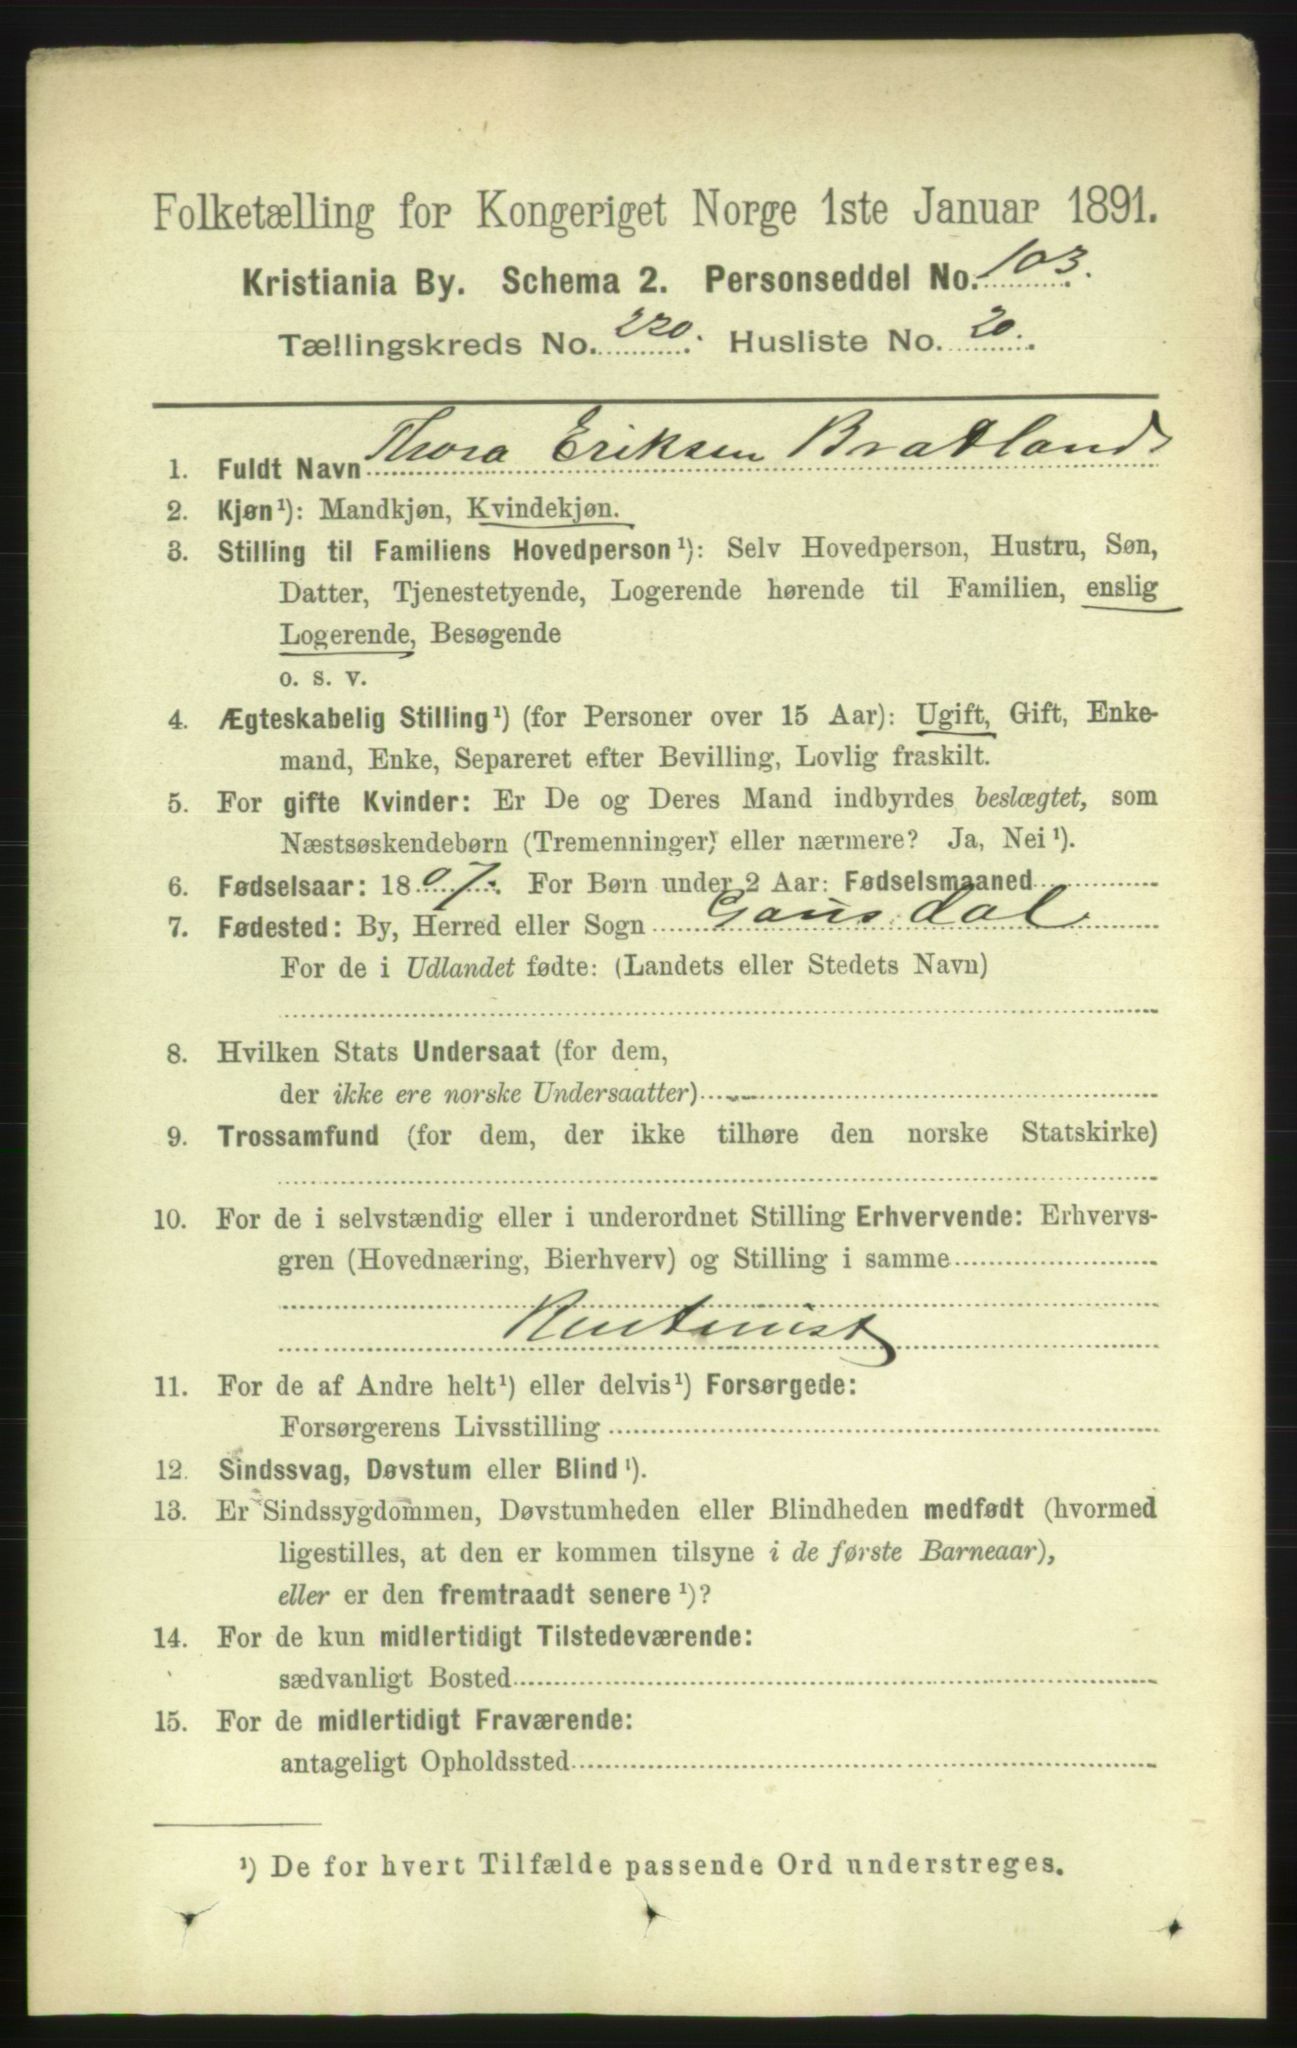 Folketælling for Kongeriget Norge 1ste Januar 1891.
Kristiania By. Schema 2. Personseddel No. 103.
Tællingskreds No. 220. Husliste No. 20.
1. Fuldt Navn Thora Eriksen Bratland
2. Kjøn¹): Mandkjøn, Kvindekjøn.
3. Stilling til Familiens Hovedperson¹): Selv Hovedperson, Hustru, Søn,
Datter, Tjenestetyende, Logerende hørende til Familien, enslig
Logerende, Besøgende
o. s. v.
4. Ægteskabelig Stilling¹) (for Personer over 15 Aar): Ugift, Gift, Enke-
mand, Enke, Separeret efter Bevilling, Lovlig fraskilt.
5. For gifte Kvinder: Er De og Deres Mand indbyrdes beslægtet, som
Næstsøskendebørn (Tremenninger) eller nærmere? Ja, Nei¹).
6. Fødselsaar: 1807. For Børn under 2 Aar: Fødselsmaaned
7. Fødested: By, Herred eller Sogn Gausdal
For de i Udlandet fødte: (Landets eller Stedets Navn)
8. Hvilken Stats Undersaat (for dem,
der ikke ere norske Undersaatter)
9. Trossamfund (for dem, der ikke tilhøre den norske Statskirke)
10. For de i selvstændig eller i underordnet Stilling Erhvervende: Erhvervs-
gren (Hovednæring, Bierhverv) og Stilling i samme
Rentenist
11. For de af Andre helt¹) eller delvis¹) Forsørgede:
Forsørgerens Livsstilling
12. Sindssvag, Døvstum eller Blind¹).
13. Er Sindssygdommen, Døvstumheden eller Blindheden medfødt (hvormed
ligestilles, at den er kommen tilsyne i de første Barneaar),
eller er den fremtraadt senere¹)?
14. For de kun midlertidigt Tilstedeværende:
sædvanligt Bosted
15. For de midlertidigt Fraværende:
antageligt Opholdssted
¹) De for hvert Tilfælde passende Ord understreges.